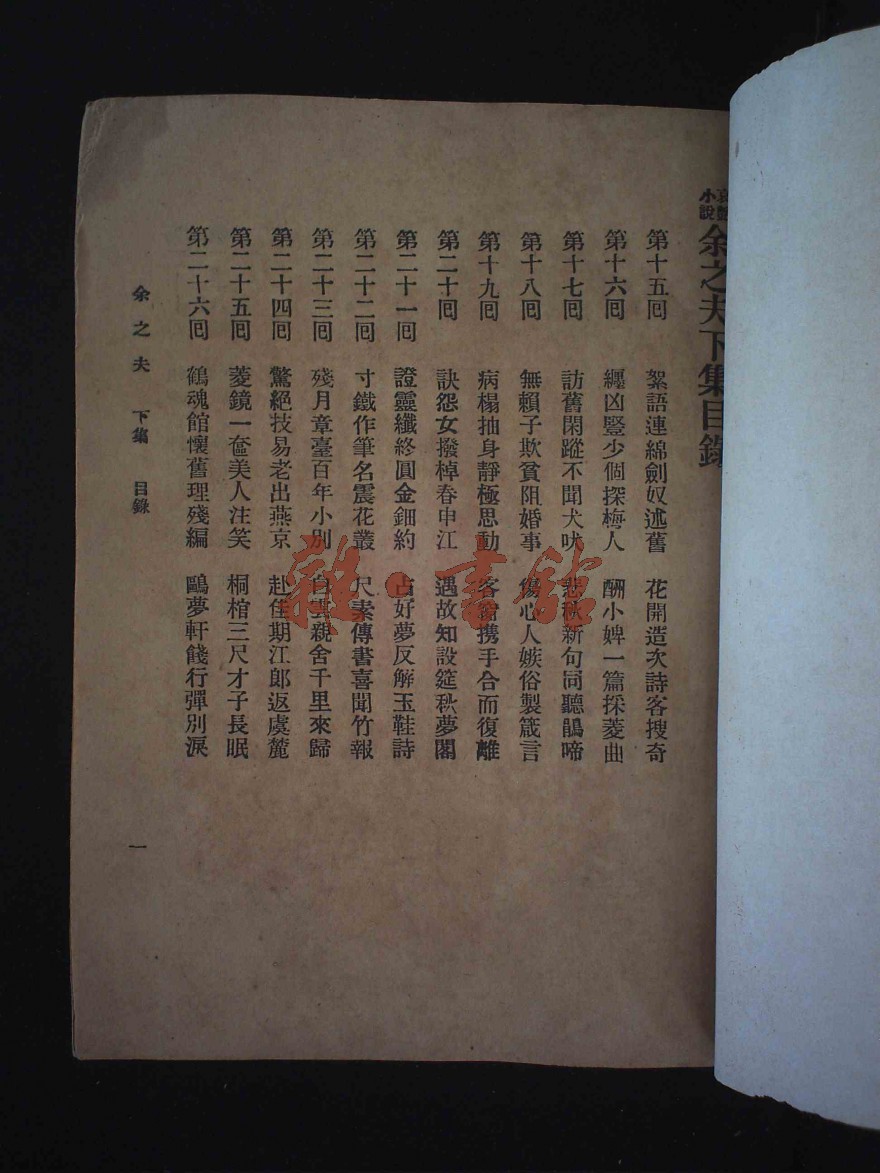 哀豔小說 余之夫下集目錄
第十五回 絮語連綿劍奴述舊 花開造次詩客搜奇
第十六回 纏凶豎少個探梅人 酬小婢一篇採菱曲
第十七回 訪舊閑蹤不聞犬吠 悲秋新句同聽鵑啼
第十八回 無賴子欺貧阻婚事 傷心人嫉俗製箴言
第十九回 病榻抽身靜極思動 客窗携手合而復離
第二十回 訣怨女撥棹春申江 遇故知設筵秋夢閣
第二十一回 證靈纖終圓金鈿約 占好夢反解玉鞋詩
第二十二回 寸鐵作筆名震花叢 尺素傳書喜聞竹報
第二十三回 殘月章臺百年小別 白雲親舍千里來歸
第二十四回 驚絕技易老出燕京 赴佳期江郎返虞麓
第二十五回 菱鏡一奩美人注笑 桐棺三尺才子長眠
第二十六回 鶴魂館懷舊理殘編 鷗夢軒餞行彈別淚
余之夫 下集 目錄 一
雜·書館